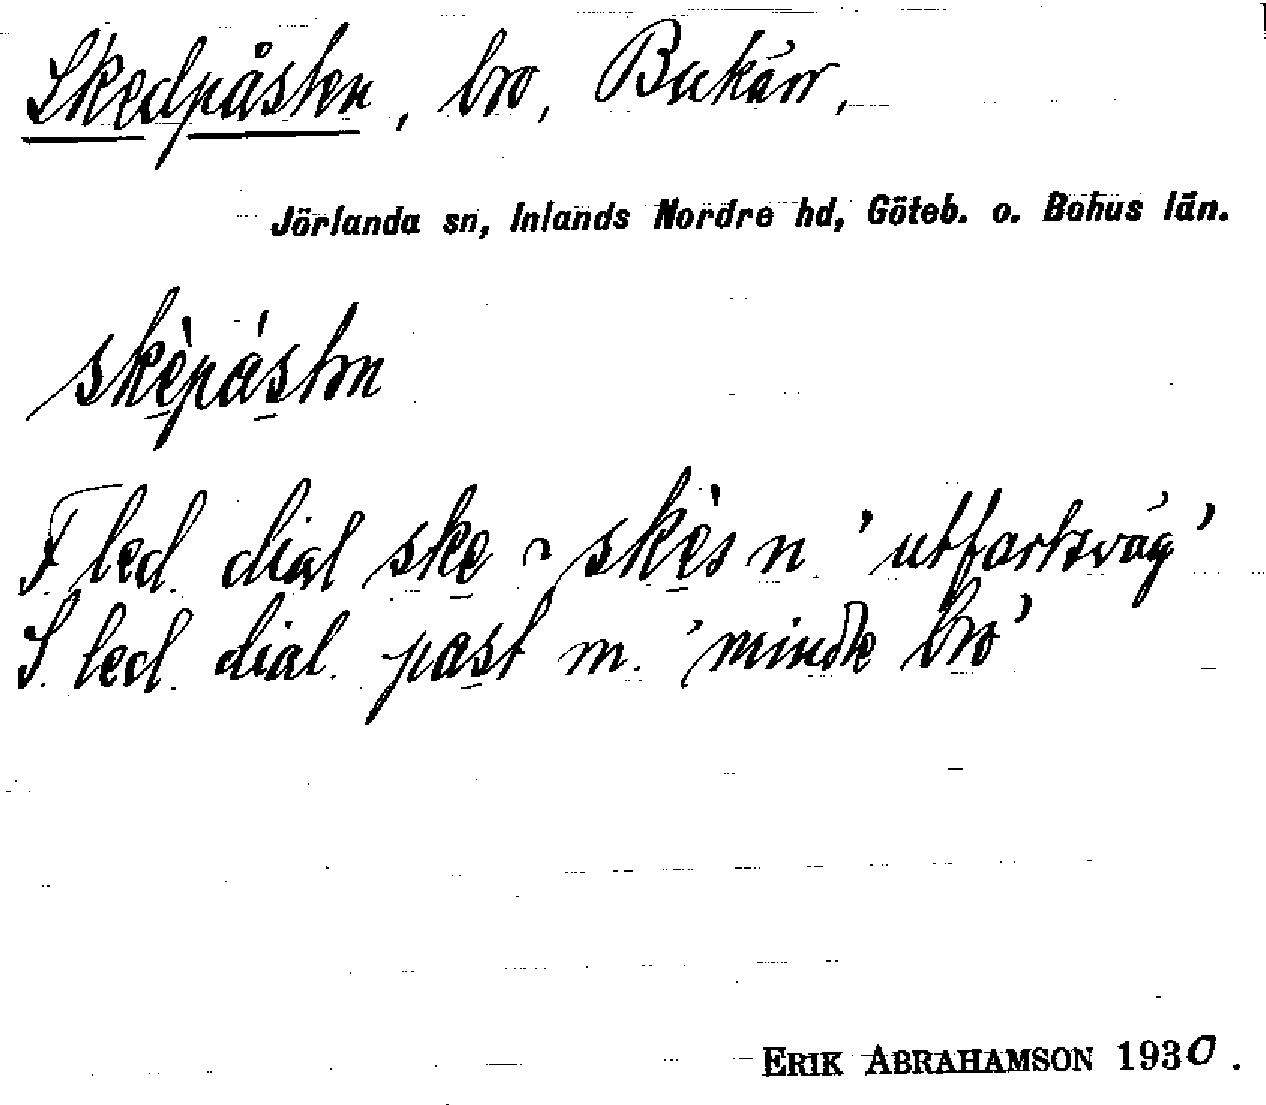 Skedpåsten, bro, Bukärr,
Jörlanda sn, Inlands Nordre hd, Göteb. o. Bohus län.
skèpástṇ
F. led. dial ske ~ skès n. 'utfartsväg'
S. led. dial. past m. 'mindre bro'
ERIK ABRAHAMSON 1930.